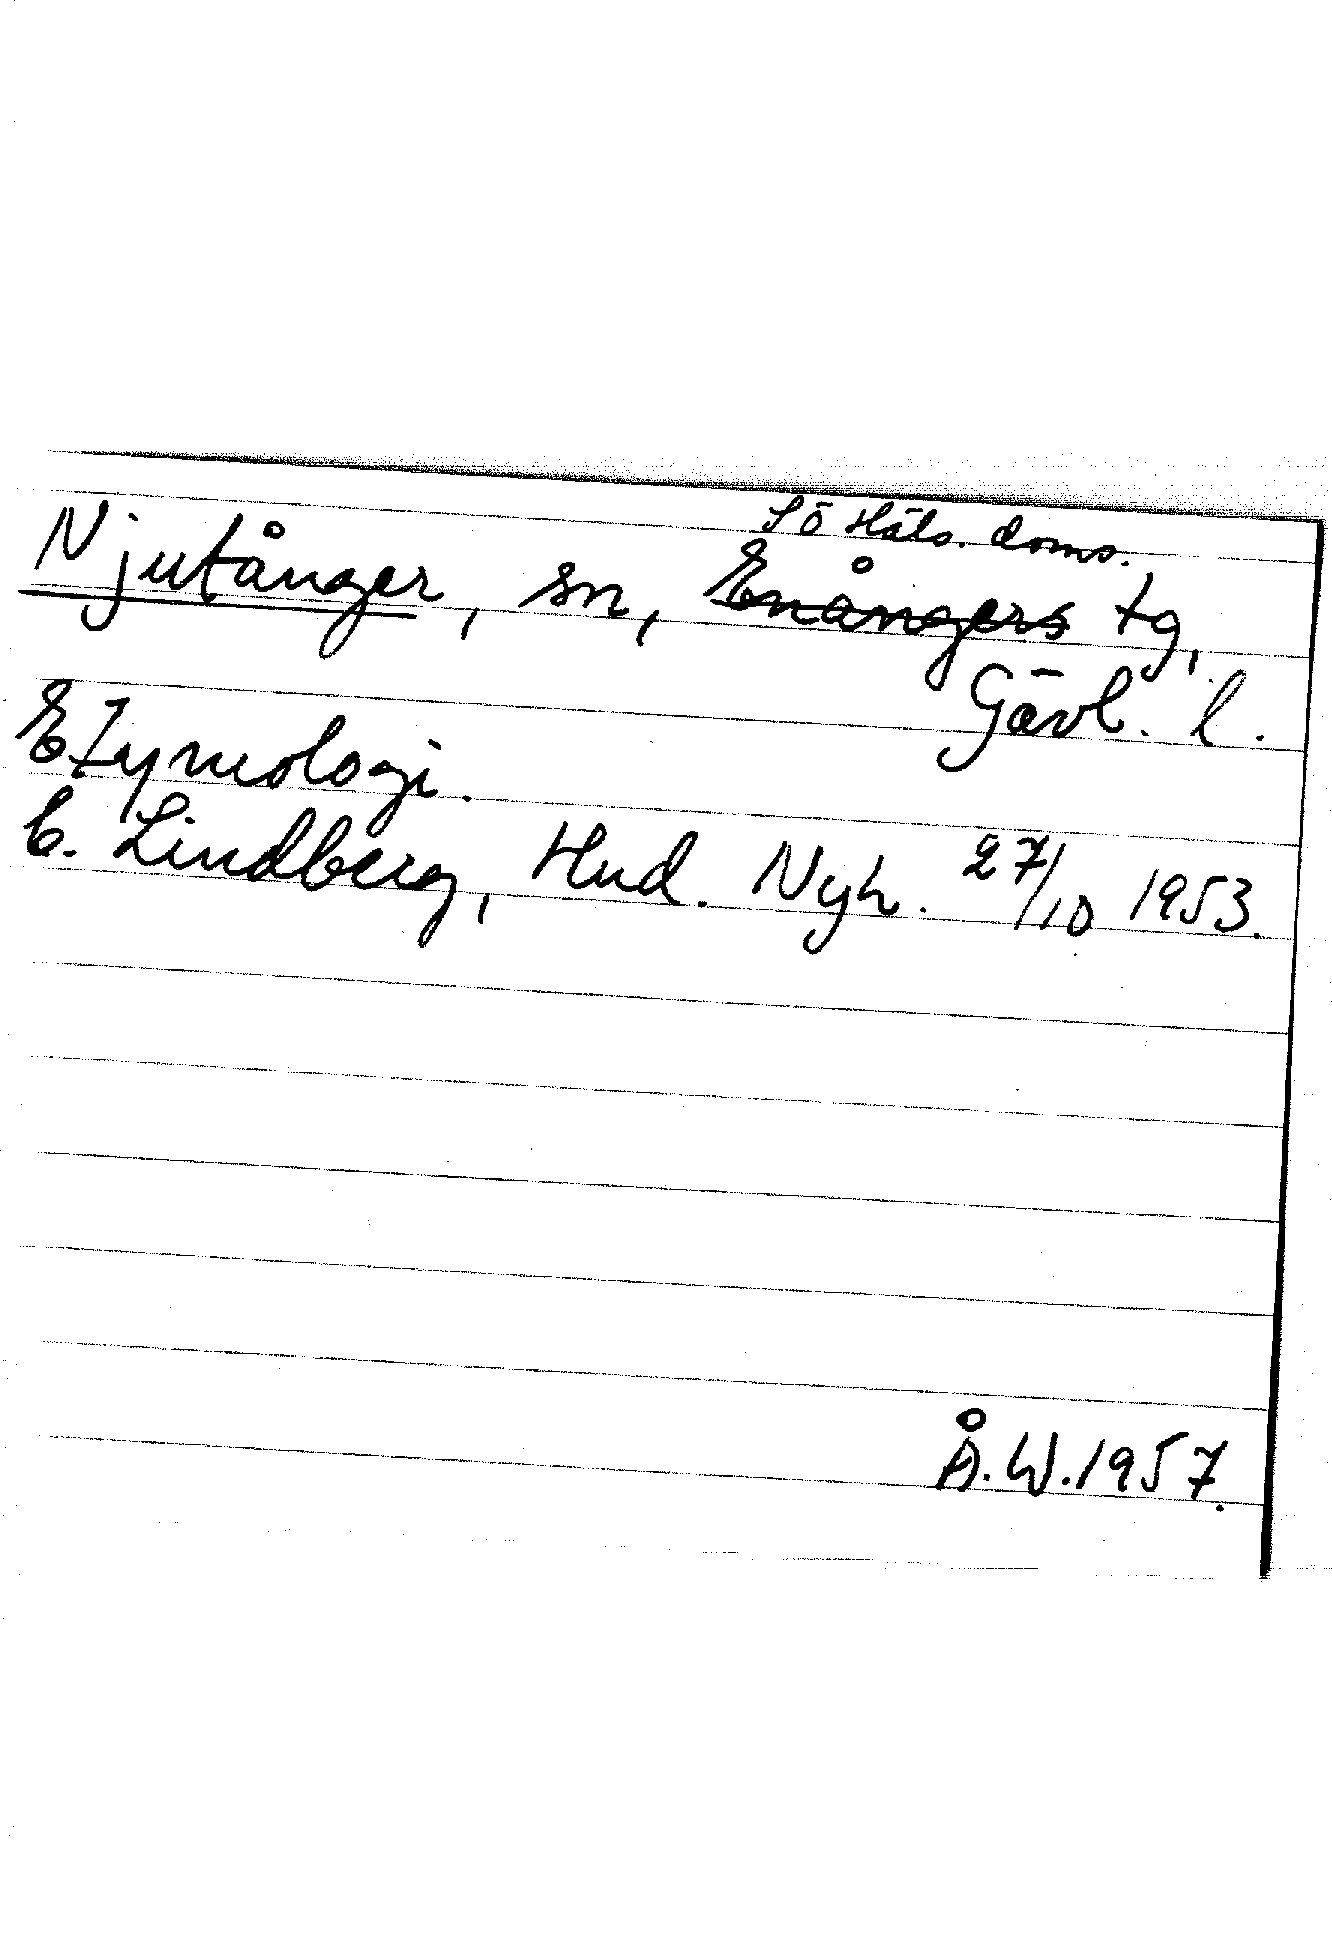 Sö Häls. doms.
Njutånger, sn, Enångers tg,
Gävl. l.
Etymologi.
C. Lindberg, Hud. Nyh. 27/10 1953.
Å.W.1957.